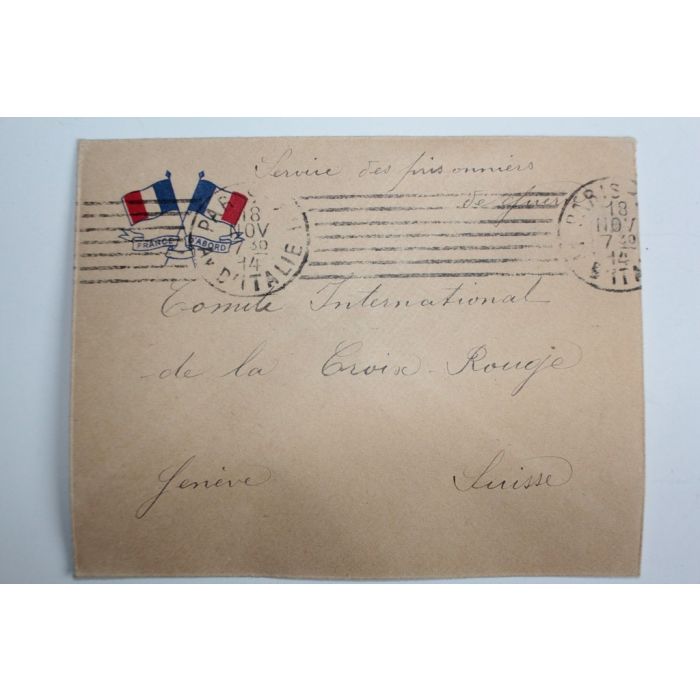 Service des prisonniers
de guerre
FRANCE D'ABORD
PARIS
18
NOV
7 30
14
D'ITALIE
PARIS
18
NOV
7 30
14
D'ITA
Comité International
de la Croix-Rouge
Genève Suisse